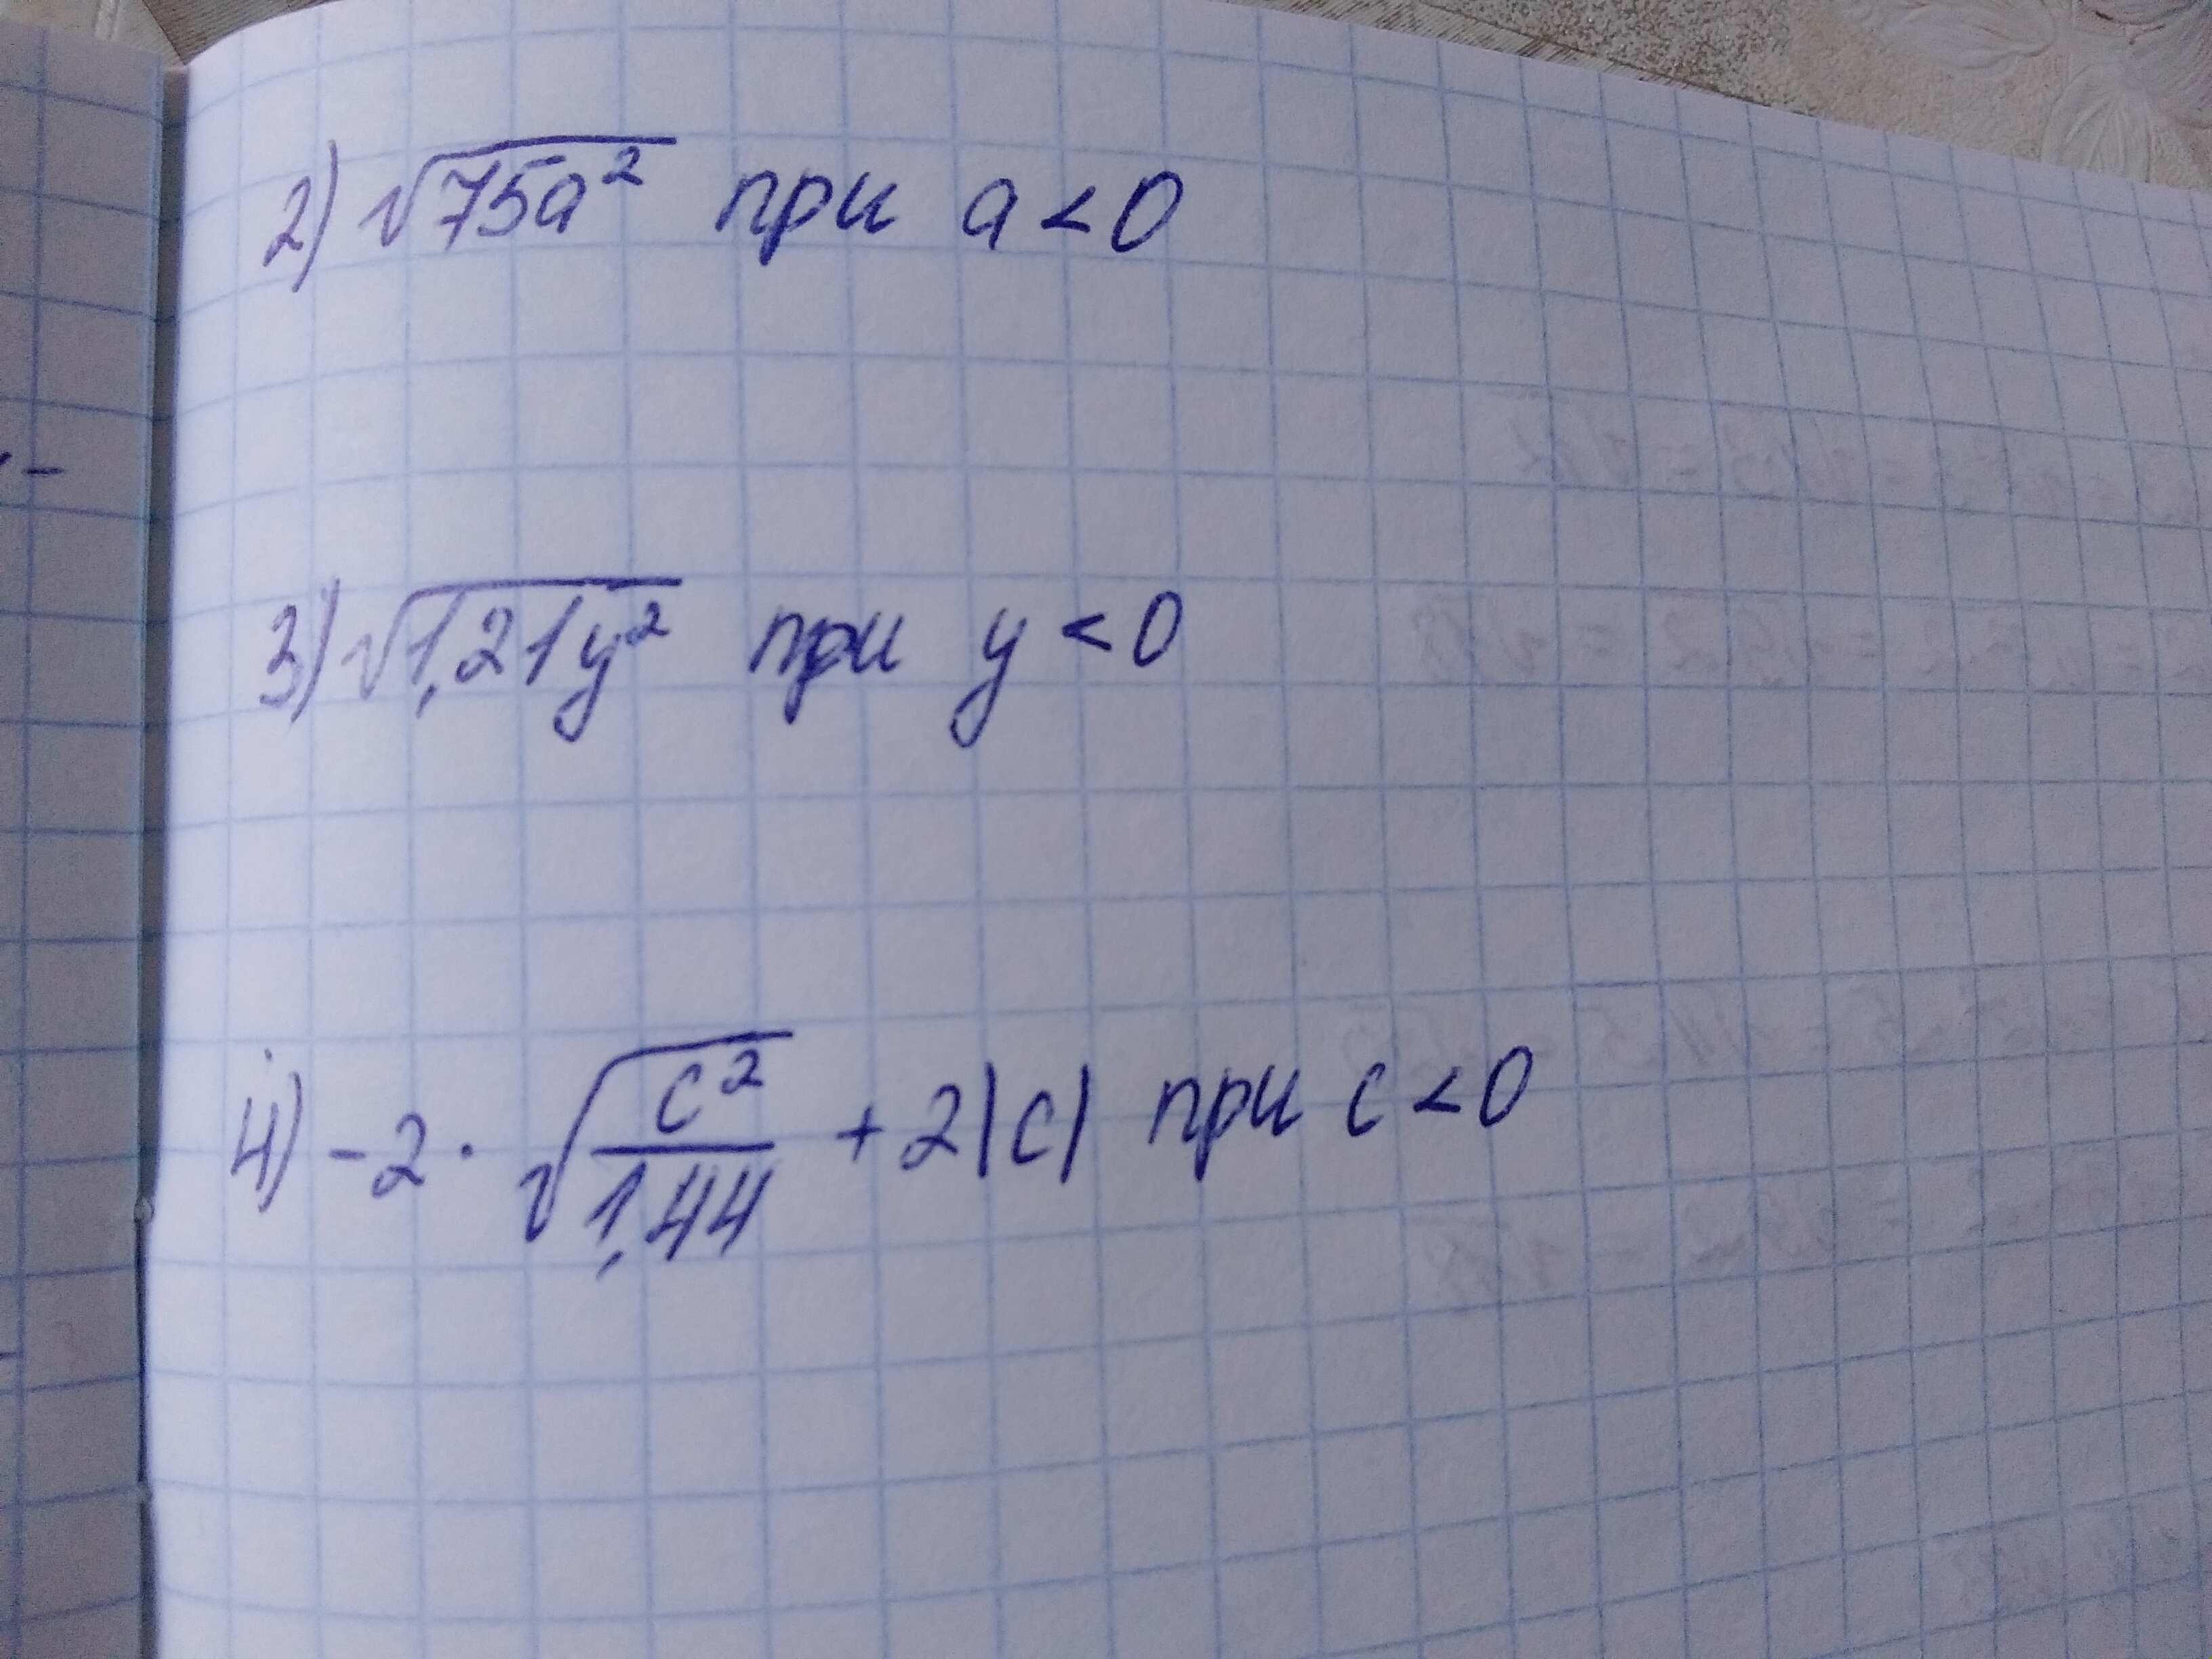 2) √75a² при a < 0
3) √1,21y² при y < 0
4) -2 · √c²/1,44 + 2|c| при c < 0